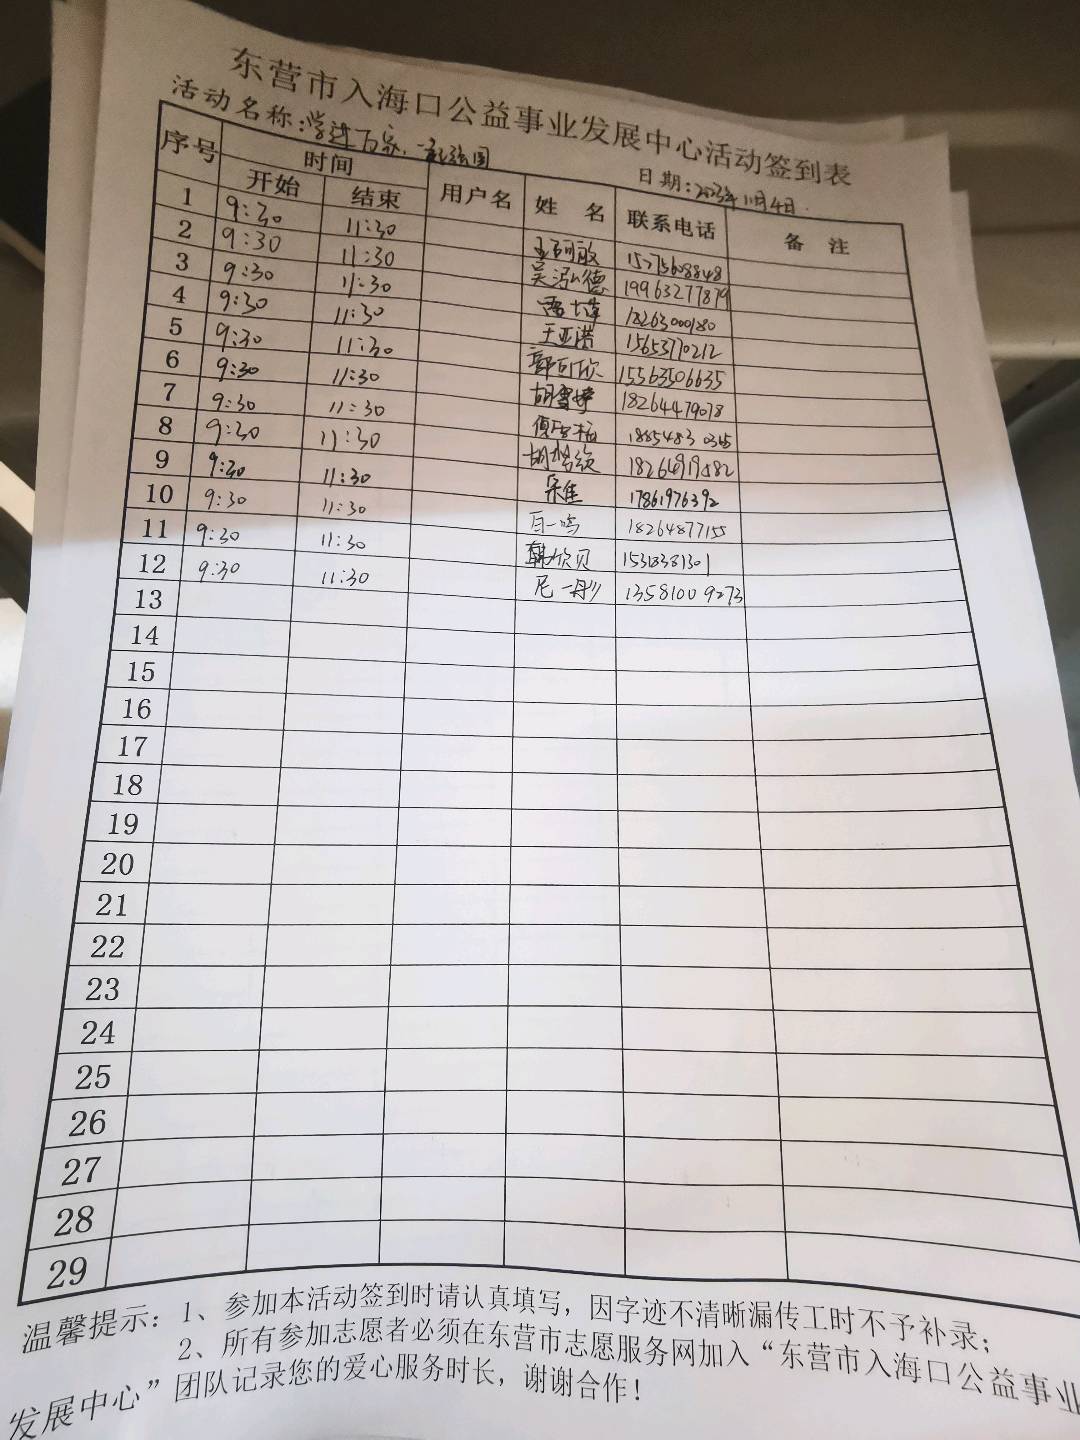 东营市入海口公益事业发展中心活动签到表
活动名称:学进万家、 日期:2023年11月4日
序号 时间 用户名 姓名 联系电话 备注
开始 结束
1 9:30 11:30
2 9:30 11:30 吴泓德 19963277879
3 9:30 11:30 18263000180
4 9:30 11:30 王亚诺 15653770212
5 9:30 11:30 郭可欣 15563506635
6 9:30 11:30 胡雪婷 18264479078
7 9:30 11:30
8 9:30 11:30
9 9:30 11:30 朱佳 17861976392
10 9:30 11:30 百一鸣 18264877155
11 9:30 11:30 韩欣贝 15318381301
12 9:30 11:30 13581009273
13
14
15
16
17
18
19
20
21
22
23
24
25
26
27
28
29
温馨提示:1、参加本活动签到时请认真填写,因字迹不清晰漏传工时不予补录;
2、所有参加志愿者必须在东营市志愿服务网加入“东营市入海口公益事业
发展中心”团队记录您的爱心服务时长,谢谢合作!